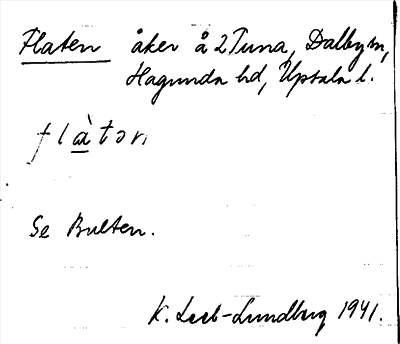 Flaten åker å 2 Tuna, Dalby sn,
Hagunda hd, Uppsala l.
flàtən
Se Bulten.
K. Leeb-Lundberg 1941.